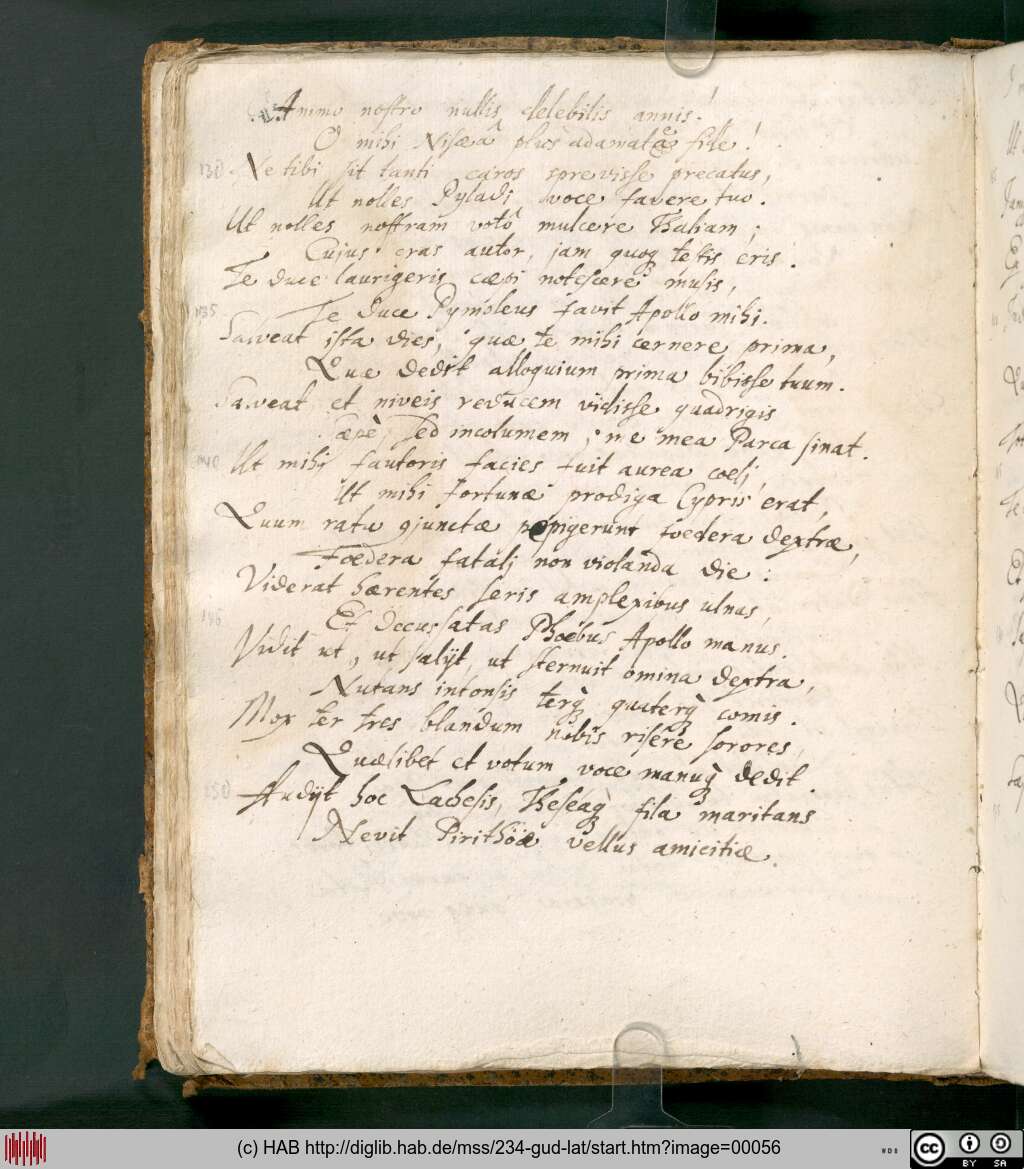 Animo nostro nullis delebilis annis!
O mihi Nisæâ plus adamatæ fide!
Ne tibi sit tanti caros sprevisse precatus,
Ut nolles Pyladi voce favere tuo.
Ut nolles nostram voto mulcere Thaliam;
Cujus eras autor, jam quoq testis eris.
Te duce laurigeris cæpi notescere musis,
Te duce Pympleus favit Apollo mihi.
Salveat ista dies, quæ te mihi cernere prima,
Quæ dedit alloquium prima bibisse tuum.
Salveat et niveis reducem vidisse quadrigis
Sæpè, sed incolumem, me mea Parca sinat.
Ut mihi fautoris facies fuit aurea coeli
Ut mihi fortunæ prodiga Cypris erat,
Quum rata 9junctæ pepigerunt foedera dextræ,
Foedera fatali non violanda die:
Viderat hærentes seris amplexibus ulnas,
Et decussatas Phoebus Apollo manus.
Vidit ut, ut salijt, ut sternuit omina dextra,
Nutans intonsis terq quaterq comis.
Mox ter tres blandum nobis risere sorores,
Quælibet et votum voce manuq dedit.
Audijt hoc Lachesis, Theseaq fila maritans
Nevit Pirithöæ vellus amicitiæ.
(c) HAB http://diglib.hab.de/mss/234-gud-lat/start.htm?image=00056
cc BY SA